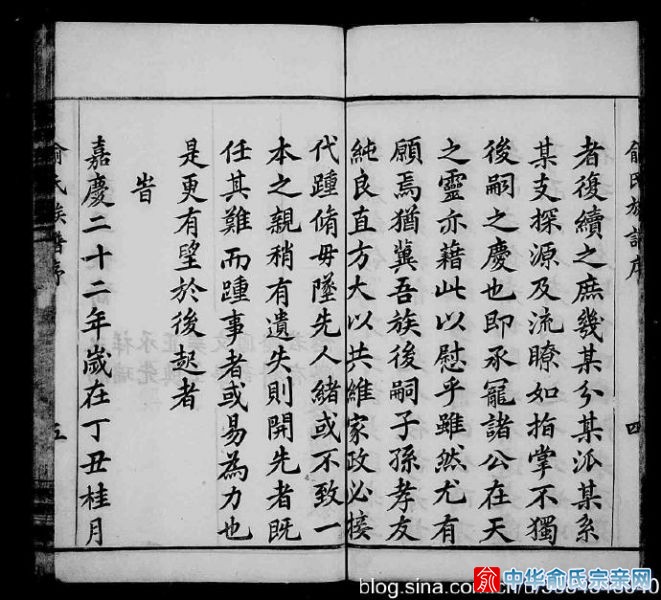 俞氏族譜序
四
者復續之庶幾某分某派某系
某支探源及流瞭如指掌不獨
後嗣之慶也即承寵諸公在天
之靈亦藉此以慰乎雖然尤有
願焉猶冀吾族後嗣子孫孝友
純良直方大以共維家政必接
代踵脩毋墜先人緒或不致一
本之親稍有遺失則開先者既
任其難而踵事者或易為力也
是更有望於後起者
旹
嘉慶二十二年歲在丁丑桂月
俞氏族譜序
五
俞 中华俞氏宗亲网